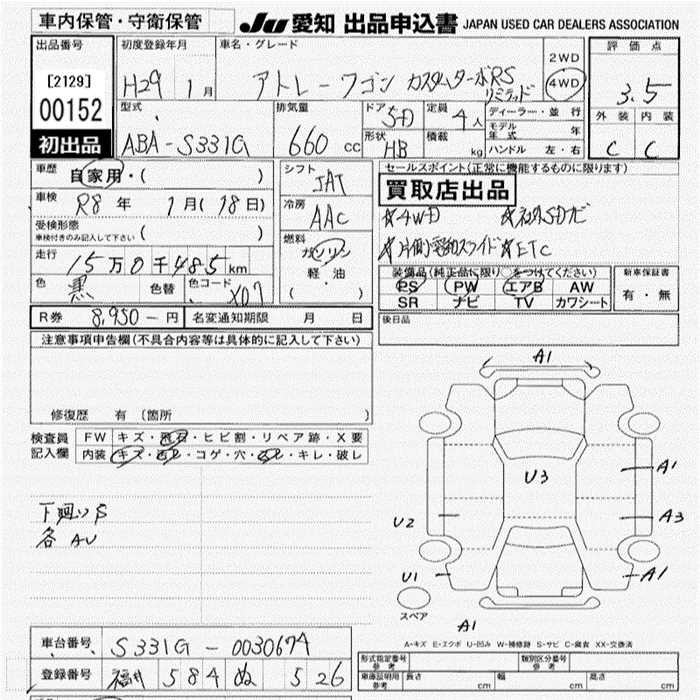 車内保管・守衛保管
JU 愛知 出品申込書 JAPAN USED CAR DEALERS ASSOCIATION
出品番号
[2129]
00152
初出品
初度登録年月
H29 1月
車名・グレード
アトレーワゴン カスタムターボRS
リミテッド
2WD
4WD
評価点
3.5
外装 内装
C C
型式
ABA-S331G
排気量
660 cc
ドア
5D
定員
4人
形状
HB
積載
kg
ディーラー・並行
モデル年式 年
ハンドル 左・右
車歴
自家用・( )
車検
R8年 1月(18日)
受検形態
車検付きのみ記入して下さい ( )
走行
15万0千485km
色
黒
色替
色コード
X07
シフト
IAT
冷房
AAC
燃料
ガソリン
軽・油
( )
セールスポイント(正常に機能するものに限り)
買取店出品
☆4WD ☆社外SDナビ
☆片側電動スライド ☆ETC
装備品(純正品に限り○をつけてください)
PS PW エアB AW
SR ナビ TV カワシート
新車保証書
有・無
R券 8,950-円 名変通知期限 月 日
後日品
注意事項申告欄(不具合内容等は具体的に記入して下さい)
修復歴 有(箇所 )
検査員
記入欄
FW キズ・飛石・ヒビ割・リペア跡・X要
内装 キズ・・コゲ・穴・・キレ・破レ
下廻りS
各AU
A1
U3
A1
A3
U2
U1
A1
A1
スペア
A-キズ E-エクボ U-凹み W-補修跡 S-サビ C-腐食 XX-交換済
車台番号 S331G-0030674
登録番号 584 ぬ 526
形式指定番号
参考
類別区分番号
参考
車庫証明用
参考
長さ cm 幅 cm 高さ cm